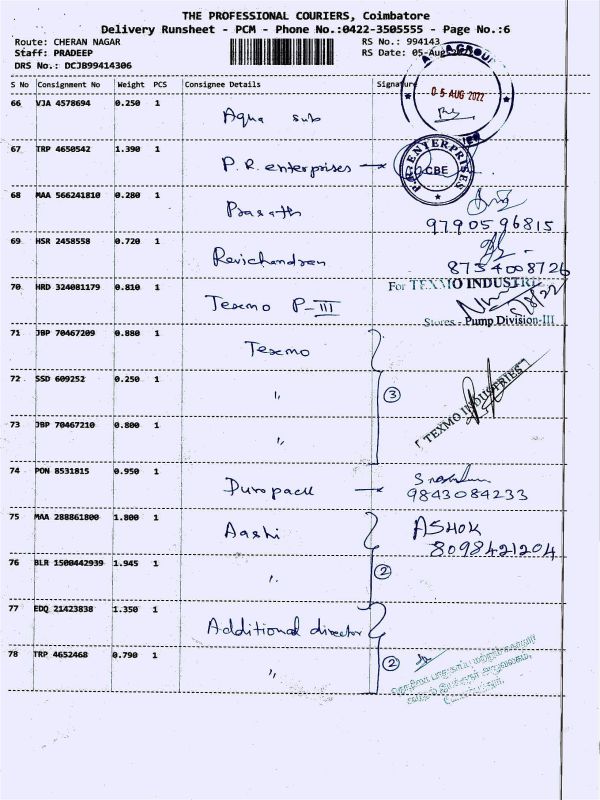 THE PROFESSIONAL COURIERS, Coimbatore
Delivery Runsheet - PCM - Phone No.:0422-3505555 - Page No.:6
Route: CHERAN NAGAR RS No.: 994143
Staff: PRADEEP RS Date: 05-Aug-
DRS No.: DCJB99414306
S No Consignment No Weight PCS Consignee Details Signature
05 AUG 2022
66 VJA 4578694 0.250 1 Aqua sub
67 TRP 4650542 1.390 1 P.R. enterprises
P.R. ENTERPRISES CBE
68 MAA 566241810 0.280 1 Prasath
9790596815
69 HSR 2458558 0.720 1 Ravichandran
8754008726
70 HRD 324081179 0.810 1 Texmo P-III
For TEXMO INDUSTRIES
5/8/22
Stores - Pump Division-III
71 JBP 70467209 0.880 1 Texmo
72 SSD 609252 0.250 1 " 3
TEXMO INDUSTRIES
73 JBP 70467210 0.800 1 "
74 PON 8531815 0.950 1 Duropack
9843084233
75 MAA 288861800 1.800 1 Aashi ASHOK
8098421204
76 BLR 1500442939 1.945 1 " 2
77 EDQ 21423838 1.350 1 Additional director
78 TRP 4652468 0.790 1 " 2